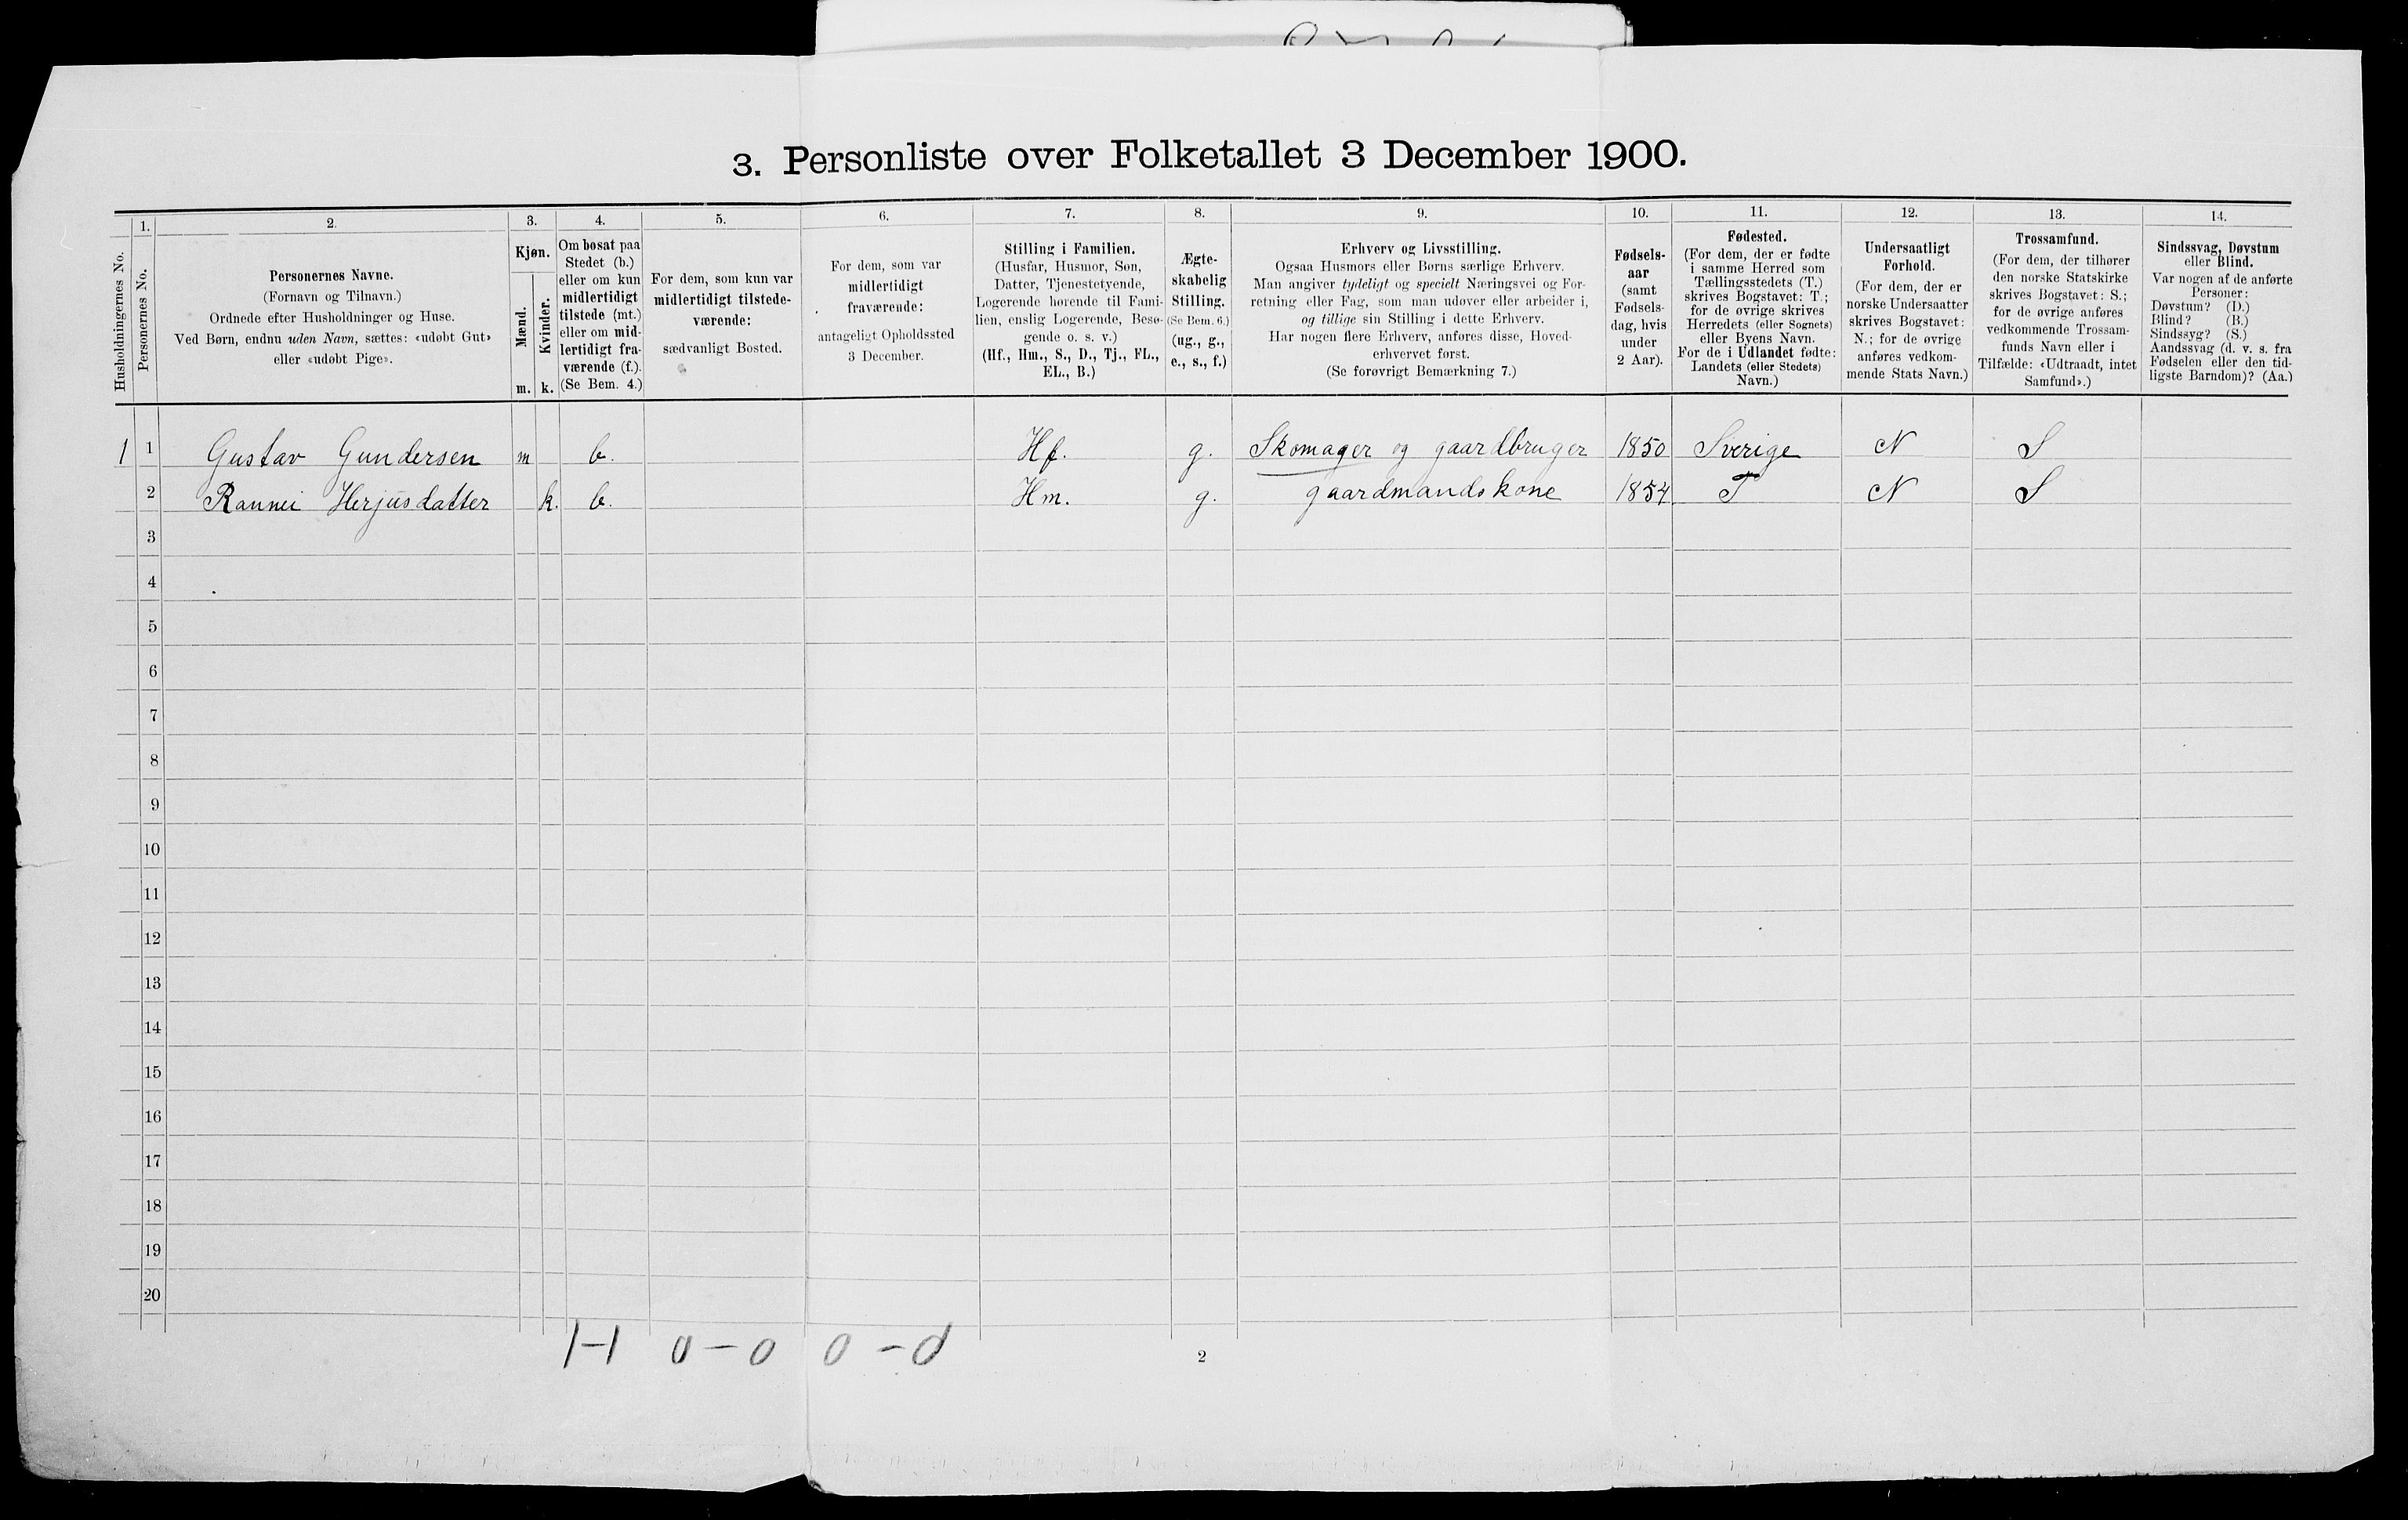 3. Personliste over Folketallet 3 December 1900.
Husholdningernes No.
1.
Personernes No.
2.
Personernes Navne.
(Fornavn og Tilnavn.)
Ordnede efter Husholdninger og Huse.
Ved Børn, endnu uden Navn, sættes: «udøbt Gut»
eller «udøbt Pige».
3.
Kjøn.
Mænd.
m.
Kvinder.
k.
4.
Om bosat paa
Stedet (b.)
eller om kun
midlertidigt
tilstede (mt.)
eller om mid-
lertidigt fra-
værende (f.).
(Se Bem. 4.)
5.
For dem, som kun var
midlertidigt tilstede-
værende:
sædvanligt Bosted.
6.
For dem, som var
midlertidigt
fraværende:
antageligt Opholdssted
3 December.
7.
Stilling i Familien.
(Husfar, Husmor, Søn,
Datter, Tjenestetyende,
Logerende hørende til Fami-
lien, enslig Logerende, Besø-
gende o. s. v.)
(Hf., Hm., S., D., Tj., FL.,
EL., B.)
8.
Ægte-
skabelig
Stilling.
(Se Bem. 6.)
(ug., g.,
e., s., f.)
9.
Erhverv og Livsstilling.
Ogsaa Husmors eller Børns særlige Erhverv.
Man angiver tydeligt og specielt Næringsvei og For-
retning eller Fag, som man udøver eller arbeider i,
og tillige sin Stilling i dette Erhverv.
Har nogen flere Erhverv, anføres disse, Hoved-
erhvervet først.
(Se forøvrigt Bemærkning 7.)
10.
Fødsels-
aar
(samt
Fødsels-
dag, hvis
under
2 Aar).
11.
Fødested.
(For dem, der er fødte
i samme Herred som
Tællingsstedets (T.)
skrives Bogstavet: T.;
for de øvrige skrives
Herredets (eller Sognets)
eller Byens Navn.
For de i Udlandet fødte:
Landets (eller Stedets)
Navn.)
12.
Undersaatligt
Forhold.
(For dem, der er
norske Undersaatter
skrives Bogstavet:
N.; for de øvrige
anføres vedkom-
mende Stats Navn.)
13.
Trossamfund.
(For dem, der tilhører
den norske Statskirke
skrives Bogstavet: S.;
for de øvrige anføres
vedkommende Trossam-
funds Navn eller i
Tilfælde: «Udtraadt, intet
Samfund».)
14.
Sindssvag, Døvstum
eller Blind.
Var nogen af de anførte
Personer:
Døvstum? (D.)
Blind? (B.)
Sindssyg? (S.)
Aandssvag (d. v. s. fra
Fødselen eller den tid-
ligste Barndom)? (Aa.)
1 1 Gustav Gundersen m b. Hf. g. Skomager og gaardbruger 1850 Sverige N S
2 Rannei Herjusdatter k. b. Hm. g. gaardmandskone 1854 T N S
3
4
5
6
7
8
9
10
11
12
13
14
15
16
17
18
19
20
1-1 0-0 0-0
2